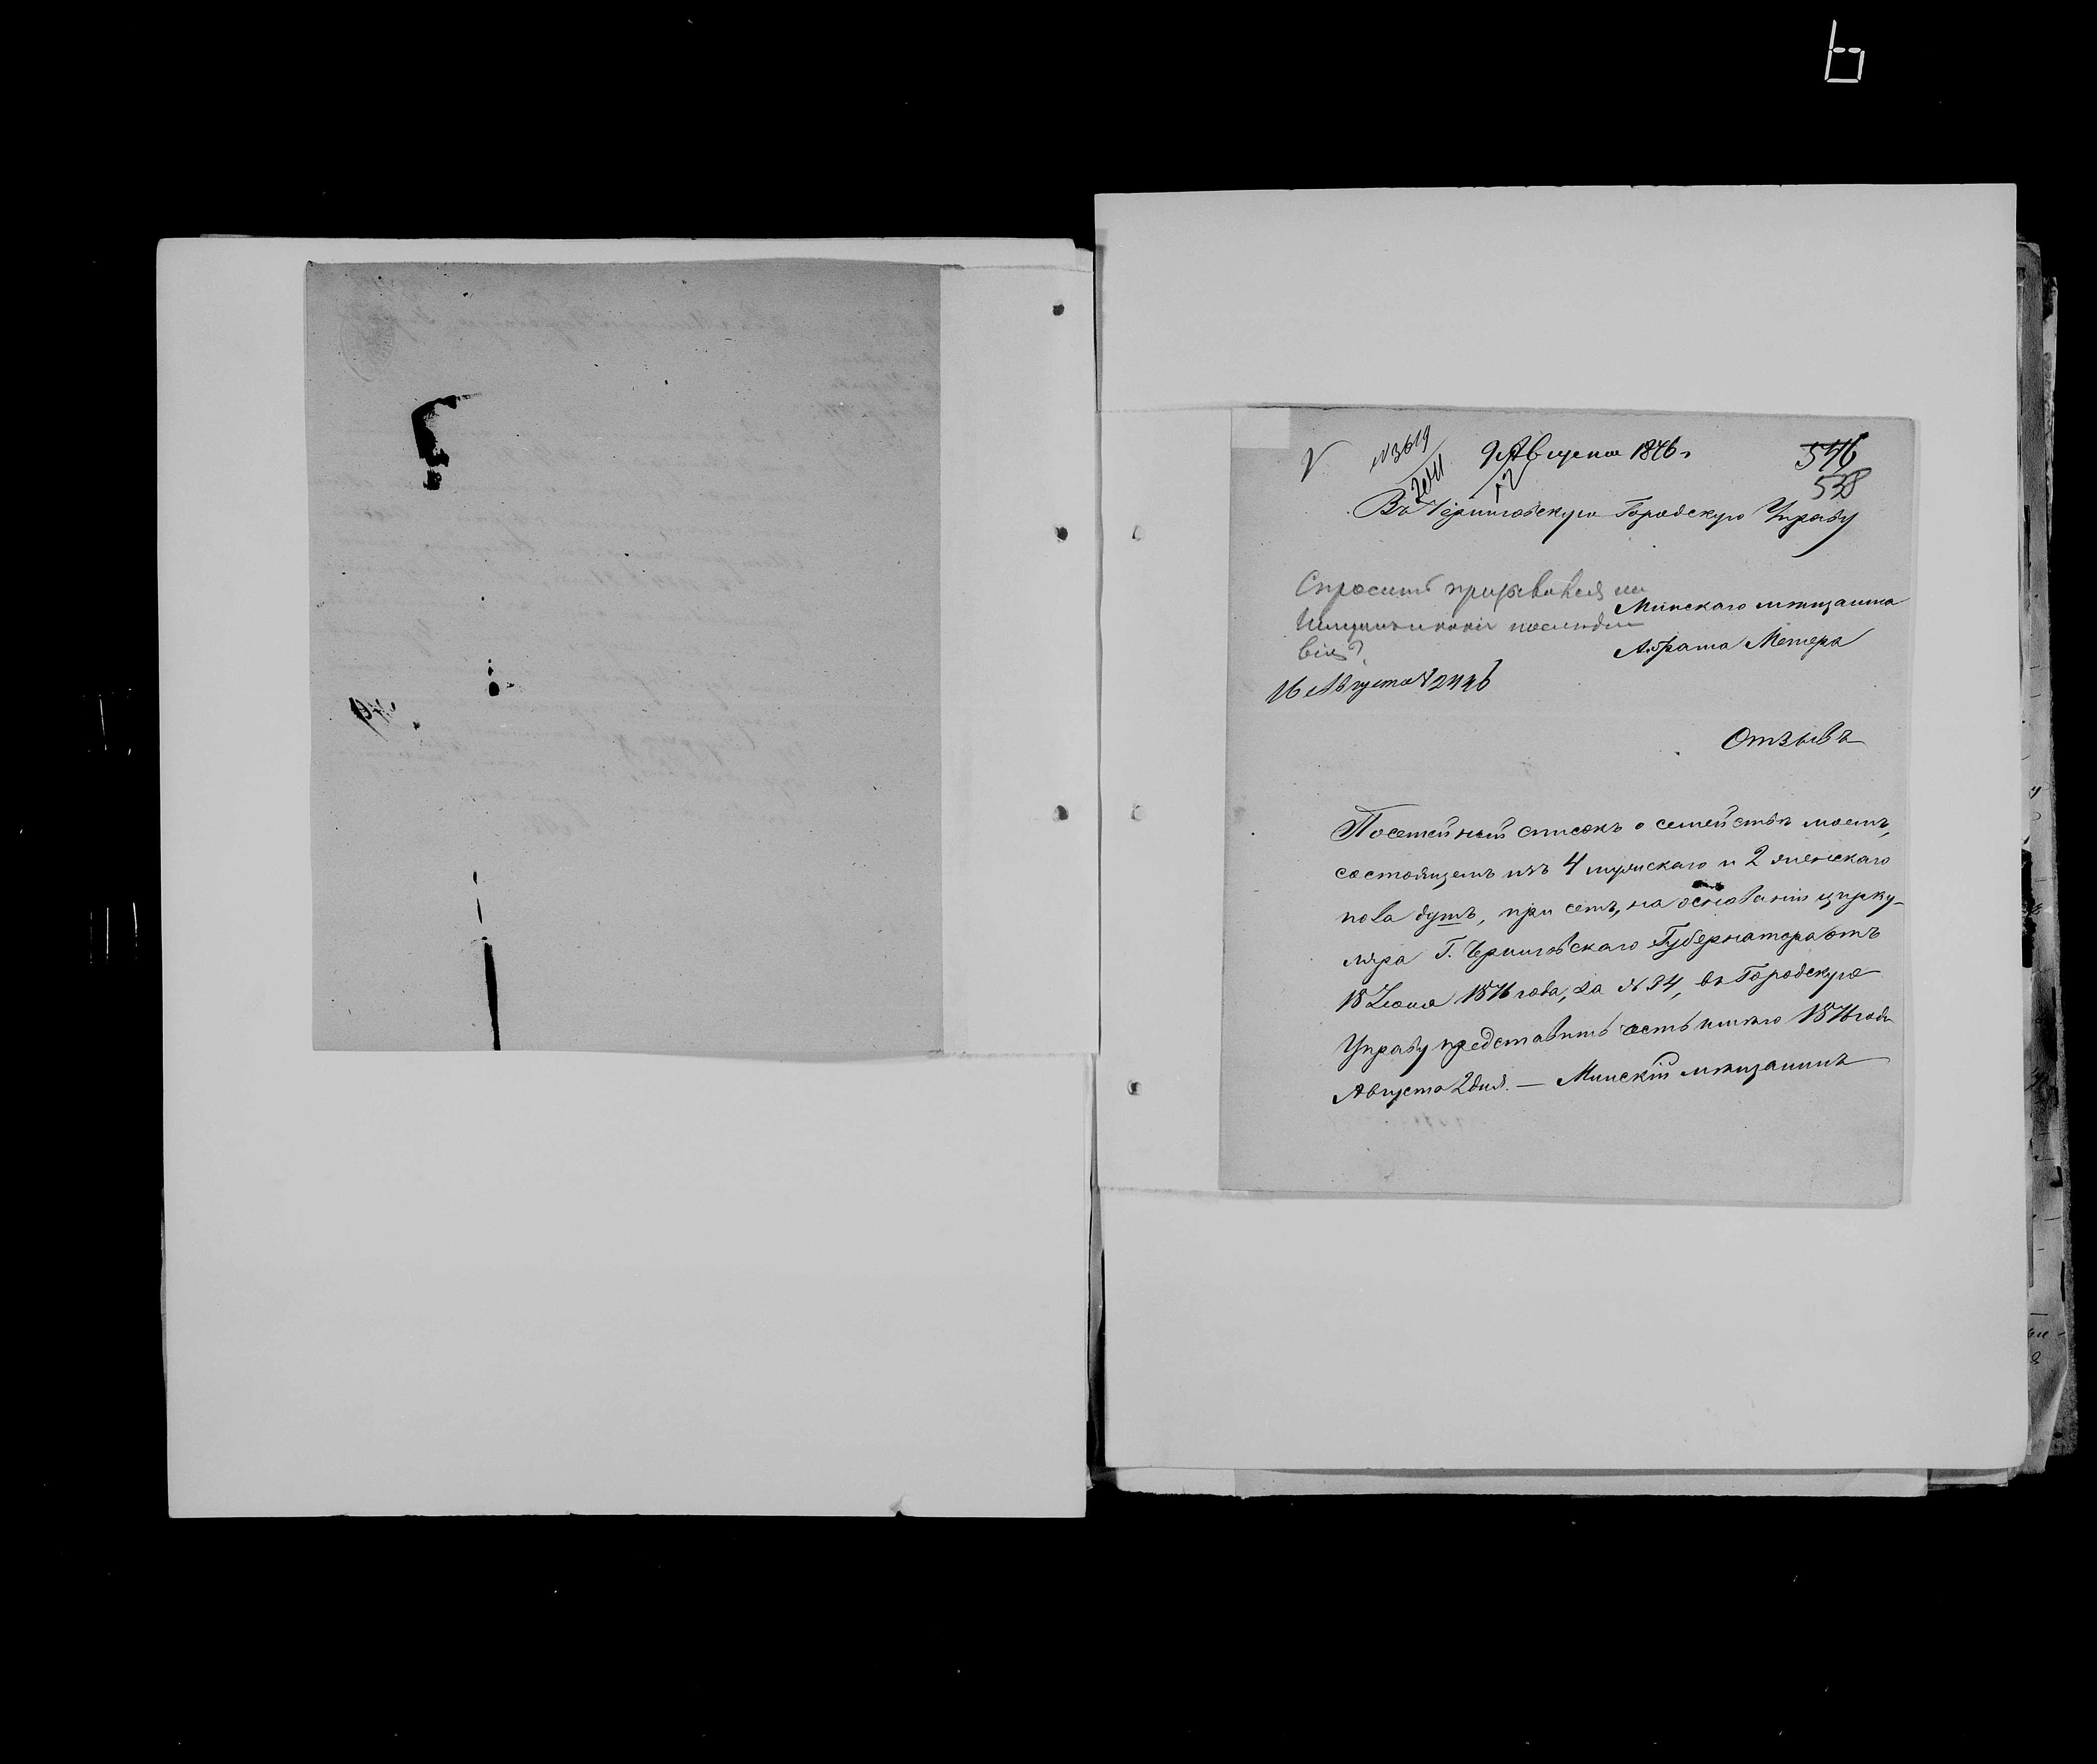 №3619
9 Августа 1876 г.
546
538
Въ Черниговскую Городскую Управу
Спросить призывался ли
Минскаго мѣщанина
Абрама Метера
16 Августа № 2446
Отзывъ
Посемейный списокъ о семействѣ моемъ,
состоящемъ изъ 4 мужскаго и 2 женскаго
пола душъ, при семъ, на основаніи цирку-
ляра Г. Черниговскаго Губернатора отъ
18 Іюня 1876 года, за № 94, въ Городскую
Управу представить честь имѣю 1876 года
Августа 2 дня. — Минскій мѣщанинъ